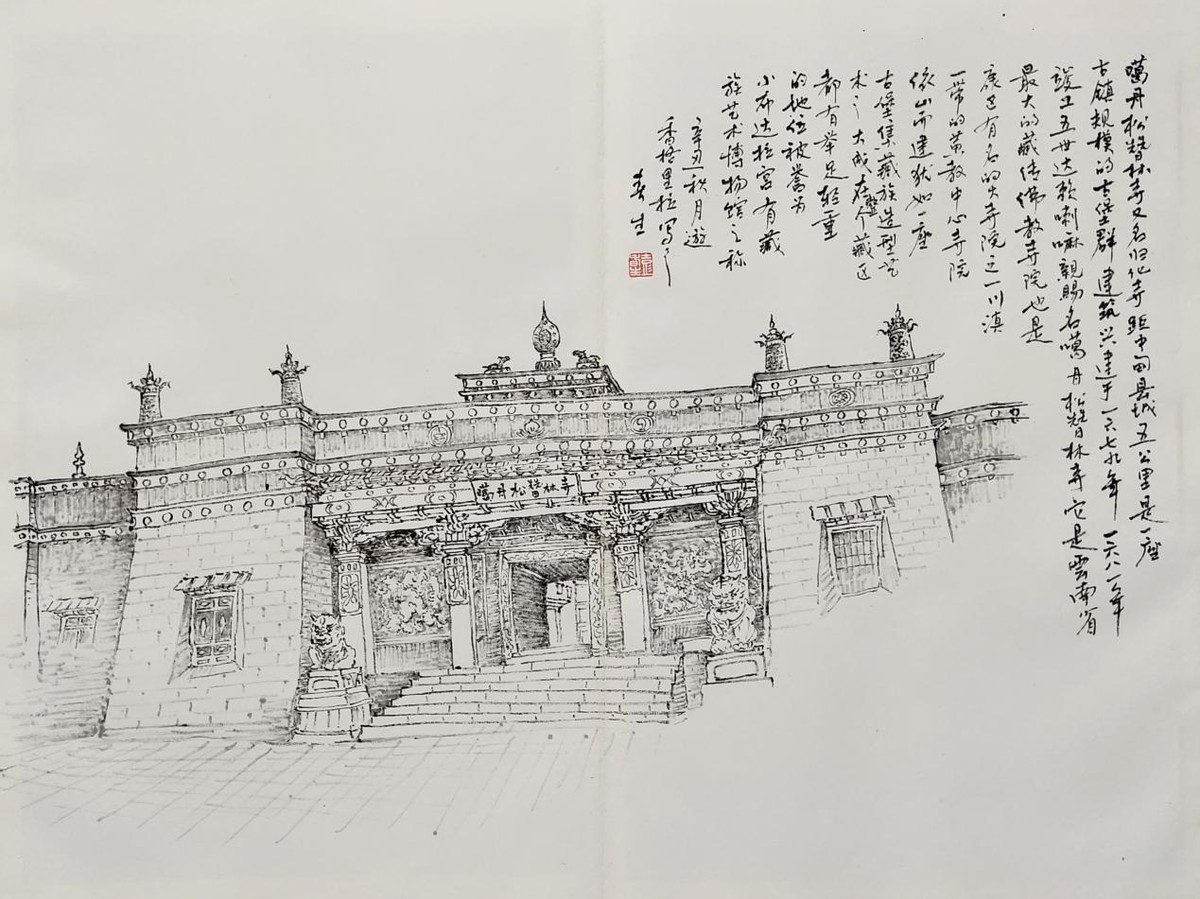 噶丹松赞林寺又名归化寺距中甸县城五公里是一座
古镇规模的古堡群建筑兴建于一六七九年一六八一年
竣工五世达赖喇嘛親賜名噶丹松赞林寺它是雲南省
最大的藏传佛教寺院也是
康区有名的大寺院之一川滇
一带的黄教中心寺院
依山而建犹如一座
古堡集藏族造型艺
术之大成在整个藏区
都有举足轻重
的地位被誉为
小布达拉宫有藏
族艺术博物馆之称
辛丑秋月遊
香格里拉写之
春生
噶丹松赞林寺